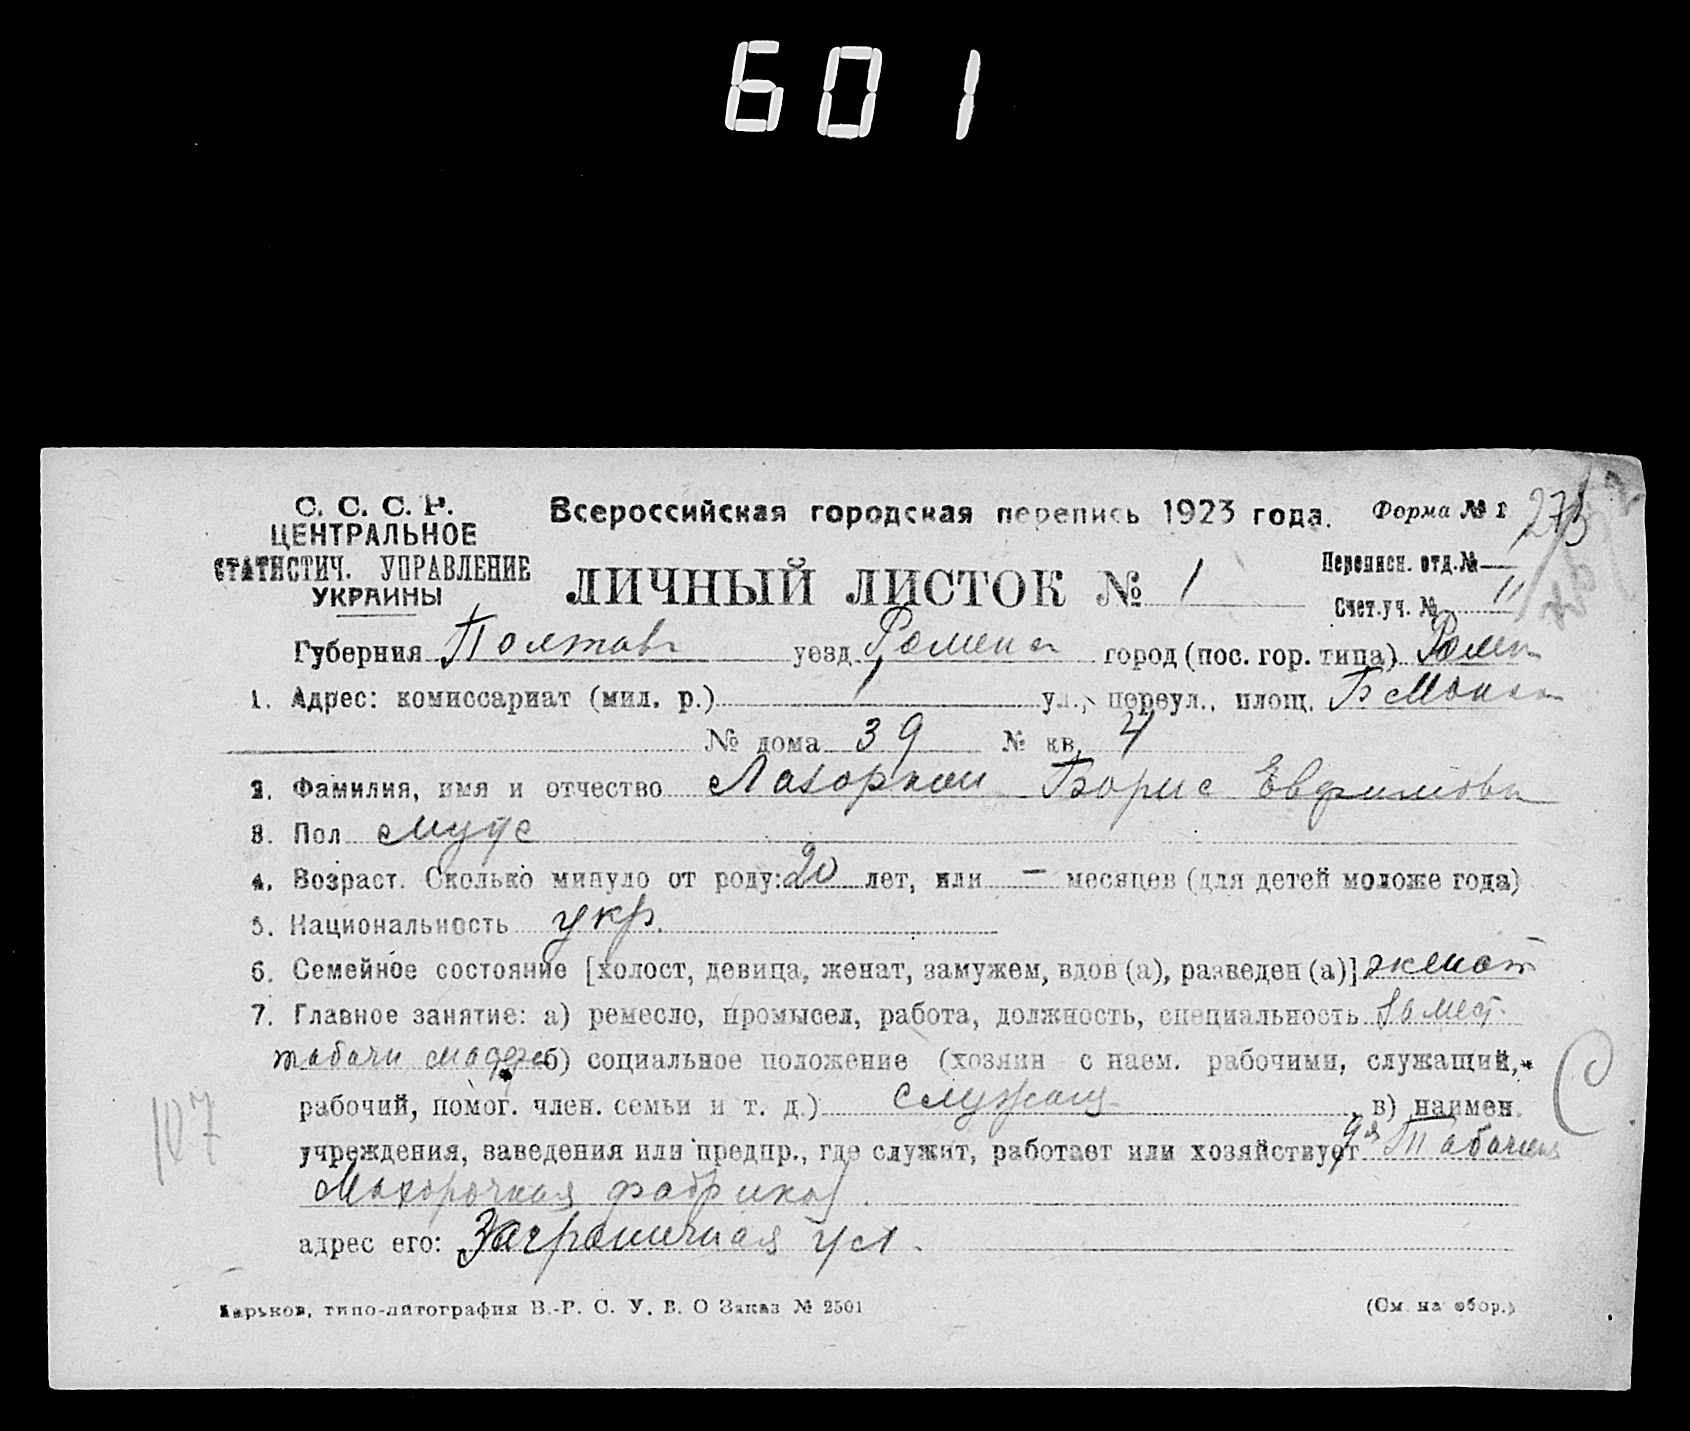 601
С. С. С. Р.
ЦЕНТРАЛЬНОЕ
СТАТИСТИЧ. УПРАВЛЕНИЕ
УКРАИНЫ
Всероссийская городская перепись 1923 года.
Форма № 1
ЛИЧНЫЙ ЛИСТОК № 1
Переписн. отд. №
Счет. уч. № 11
Губерния Полтав уезд Роменс город (пос. гор. типа) Ромен
1. Адрес: комиссариат (мил. р.) 1 ул., переул., площ.
№ дома 39 № кв. 4
2. Фамилия, имя и отчество Борис Евфимов
3. Пол муж
4. Возраст. Сколько минуло от роду: 20 лет, или — месяцев (для детей моложе года)
5. Национальность укр.
6. Семейное состояние [холост, девица, женат, замужем, вдов (а), разведен (а)] женат
7. Главное занятие: а) ремесло, промысел, работа, должность, специальность Замест.
табачн б) социальное положение (хозяин с наем. рабочими, служащий,
рабочий, помог. член. семьи и т. д.) служащ в) наимен.
учреждения, заведения или предпр., где служит, работает или хозяйствует Табачная
Махорочная фабрика
адрес его: Заграничная ул.
107
С
Харьков, типо-литография В.-Р. С. У. В. О Заказ № 2501
(См. на обор.)